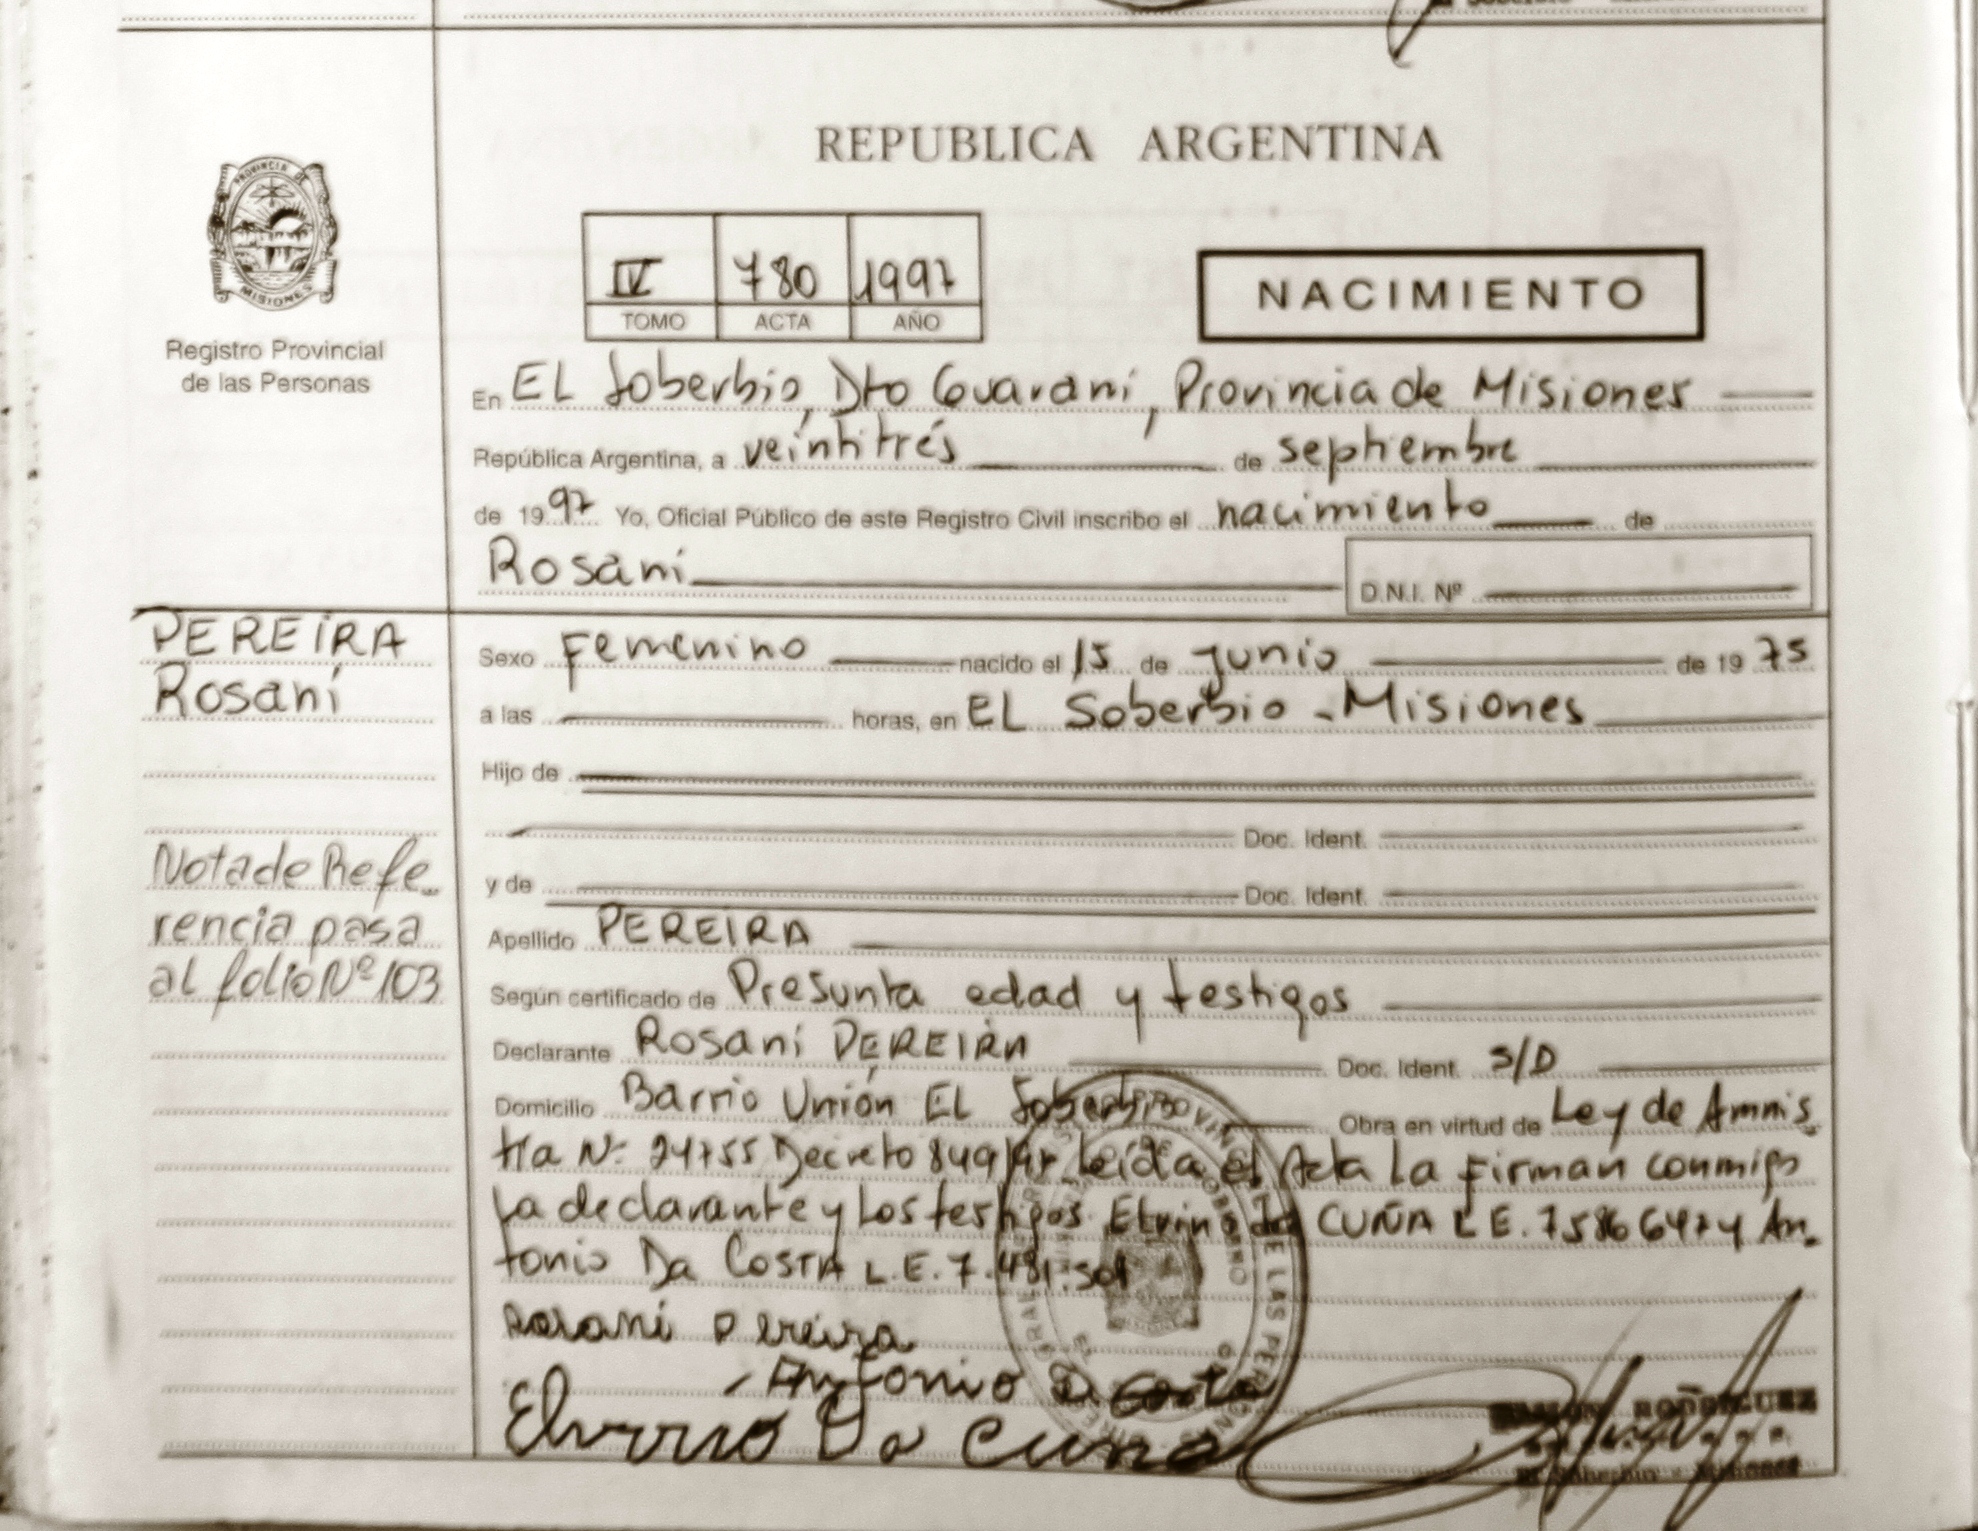 REPUBLICA ARGENTINA
PROVINCIA DE
MISIONES
Registro Provincial
de las Personas
IV 780 1997
TOMO ACTA AÑO
NACIMIENTO
En EL Soberbio, Dto Guaraní, Provincia de Misiones
República Argentina, a veintitrés de septiembre
de 1997 Yo, Oficial Público de este Registro Civil inscribo el nacimiento de
Rosani
D.N.I. Nº
PEREIRA
Rosani
Nota de Refe-
rencia pasa
al folio Nº 103
Sexo Femenino nacido el 15 de junio de 1975
a las horas, en EL Soberbio - Misiones
Hijo de
Doc. Ident.
y de Doc. Ident.
Apellido PEREIRA
Según certificado de Presunta edad y testigos
Declarante Rosani PEREIRA Doc. Ident. S/D
Domicilio Barrio Unión EL Soberbio Obra en virtud de Ley de Amnis
tia Nº 24755 Decreto 849/97 Leída el Acta La Firman conmigo
La declarante y Los testigos Elvino da CUÑA L.E. y An-
tonio Da COSTA L.E. 7.481.501
Rosani Pereira
Antonio Da Costa
Elvrino Da Cuna
RAMON RODRIGUEZ
El Soberbio - Misiones